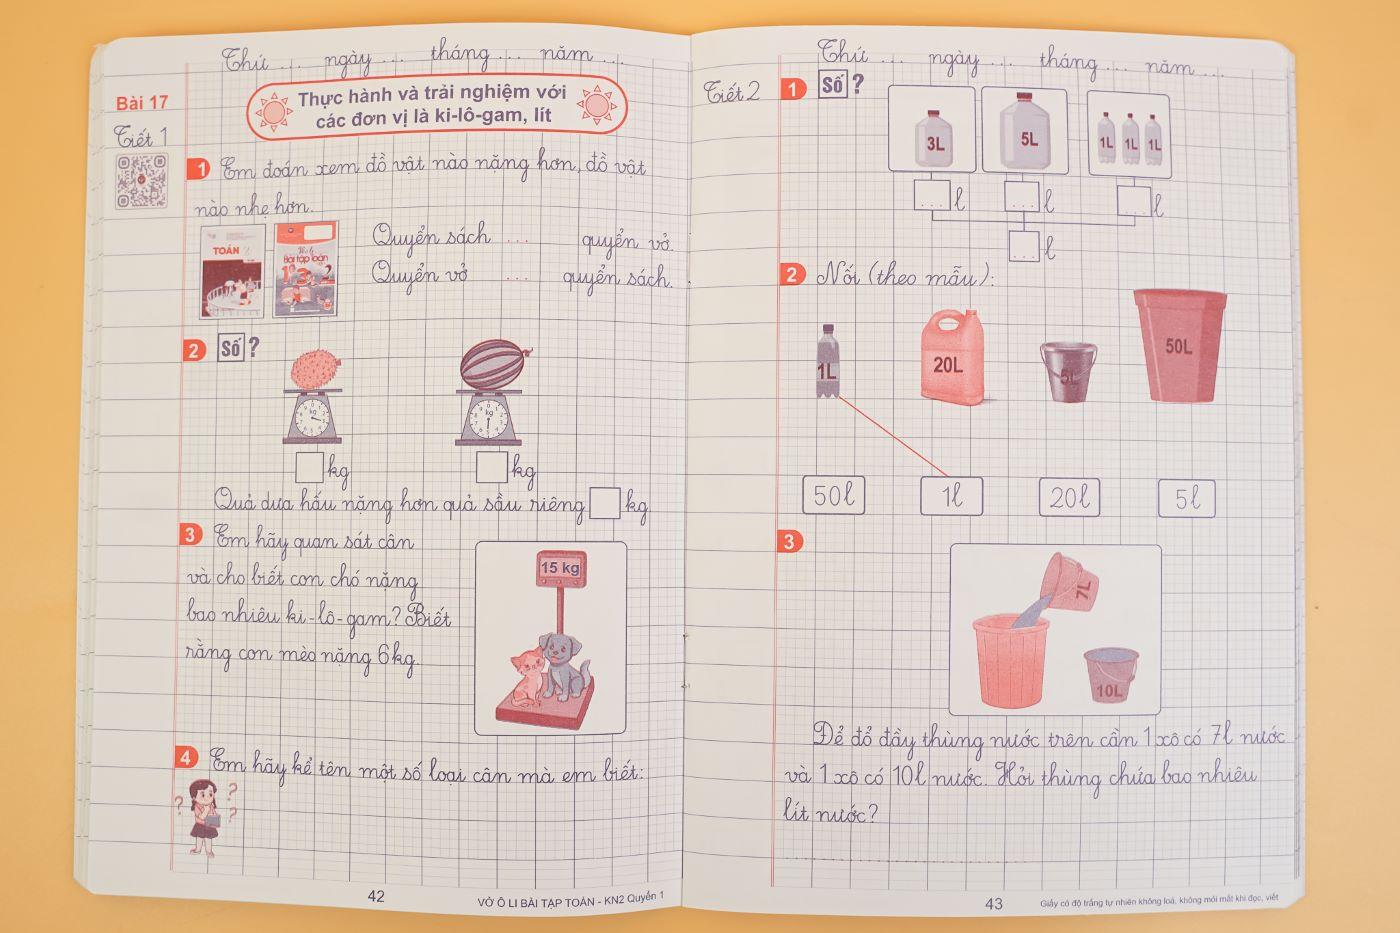 Thứ ... ngày ... tháng ... năm ...
Bài 17
Thực hành và trải nghiệm với
các đơn vị là ki-lô-gam, lít
Tiết 1
1 Em đoán xem đồ vật nào nặng hơn, đồ vật
nào nhẹ hơn.
TOÁN
Vở ô li
Bài tập toán
2
Quyển sách ... quyển vở.
Quyển vở ... quyển sách.
2 Số ?
kg
kg
kg kg
Quả dưa hấu nặng hơn quả sầu riêng kg
3 Em hãy quan sát cân
và cho biết con chó nặng
bao nhiêu ki-lô-gam? Biết
rằng con mèo nặng 6kg.
15 kg
4 Em hãy kể tên một số loại cân mà em biết:
? ? ?
42
VỞ Ô LI BÀI TẬP TOÁN - KN2 Quyển 1
Thứ ... ngày ... tháng ... năm ...
Tiết 2
1 Số ?
3L 5L 1L 1L 1L
... l ... l ... l
... l
2 Nối (theo mẫu):
1L 20L 5L 50L
50l 1l 20l 5l
3
7L
10L
Để đổ đầy thùng nước trên cần 1 xô có 7l nước
và 1 xô có 10l nước. Hỏi thùng chứa bao nhiêu
lít nước?
43
Giấy có độ trắng tự nhiên không loá, không mỏi mắt khi đọc, viết